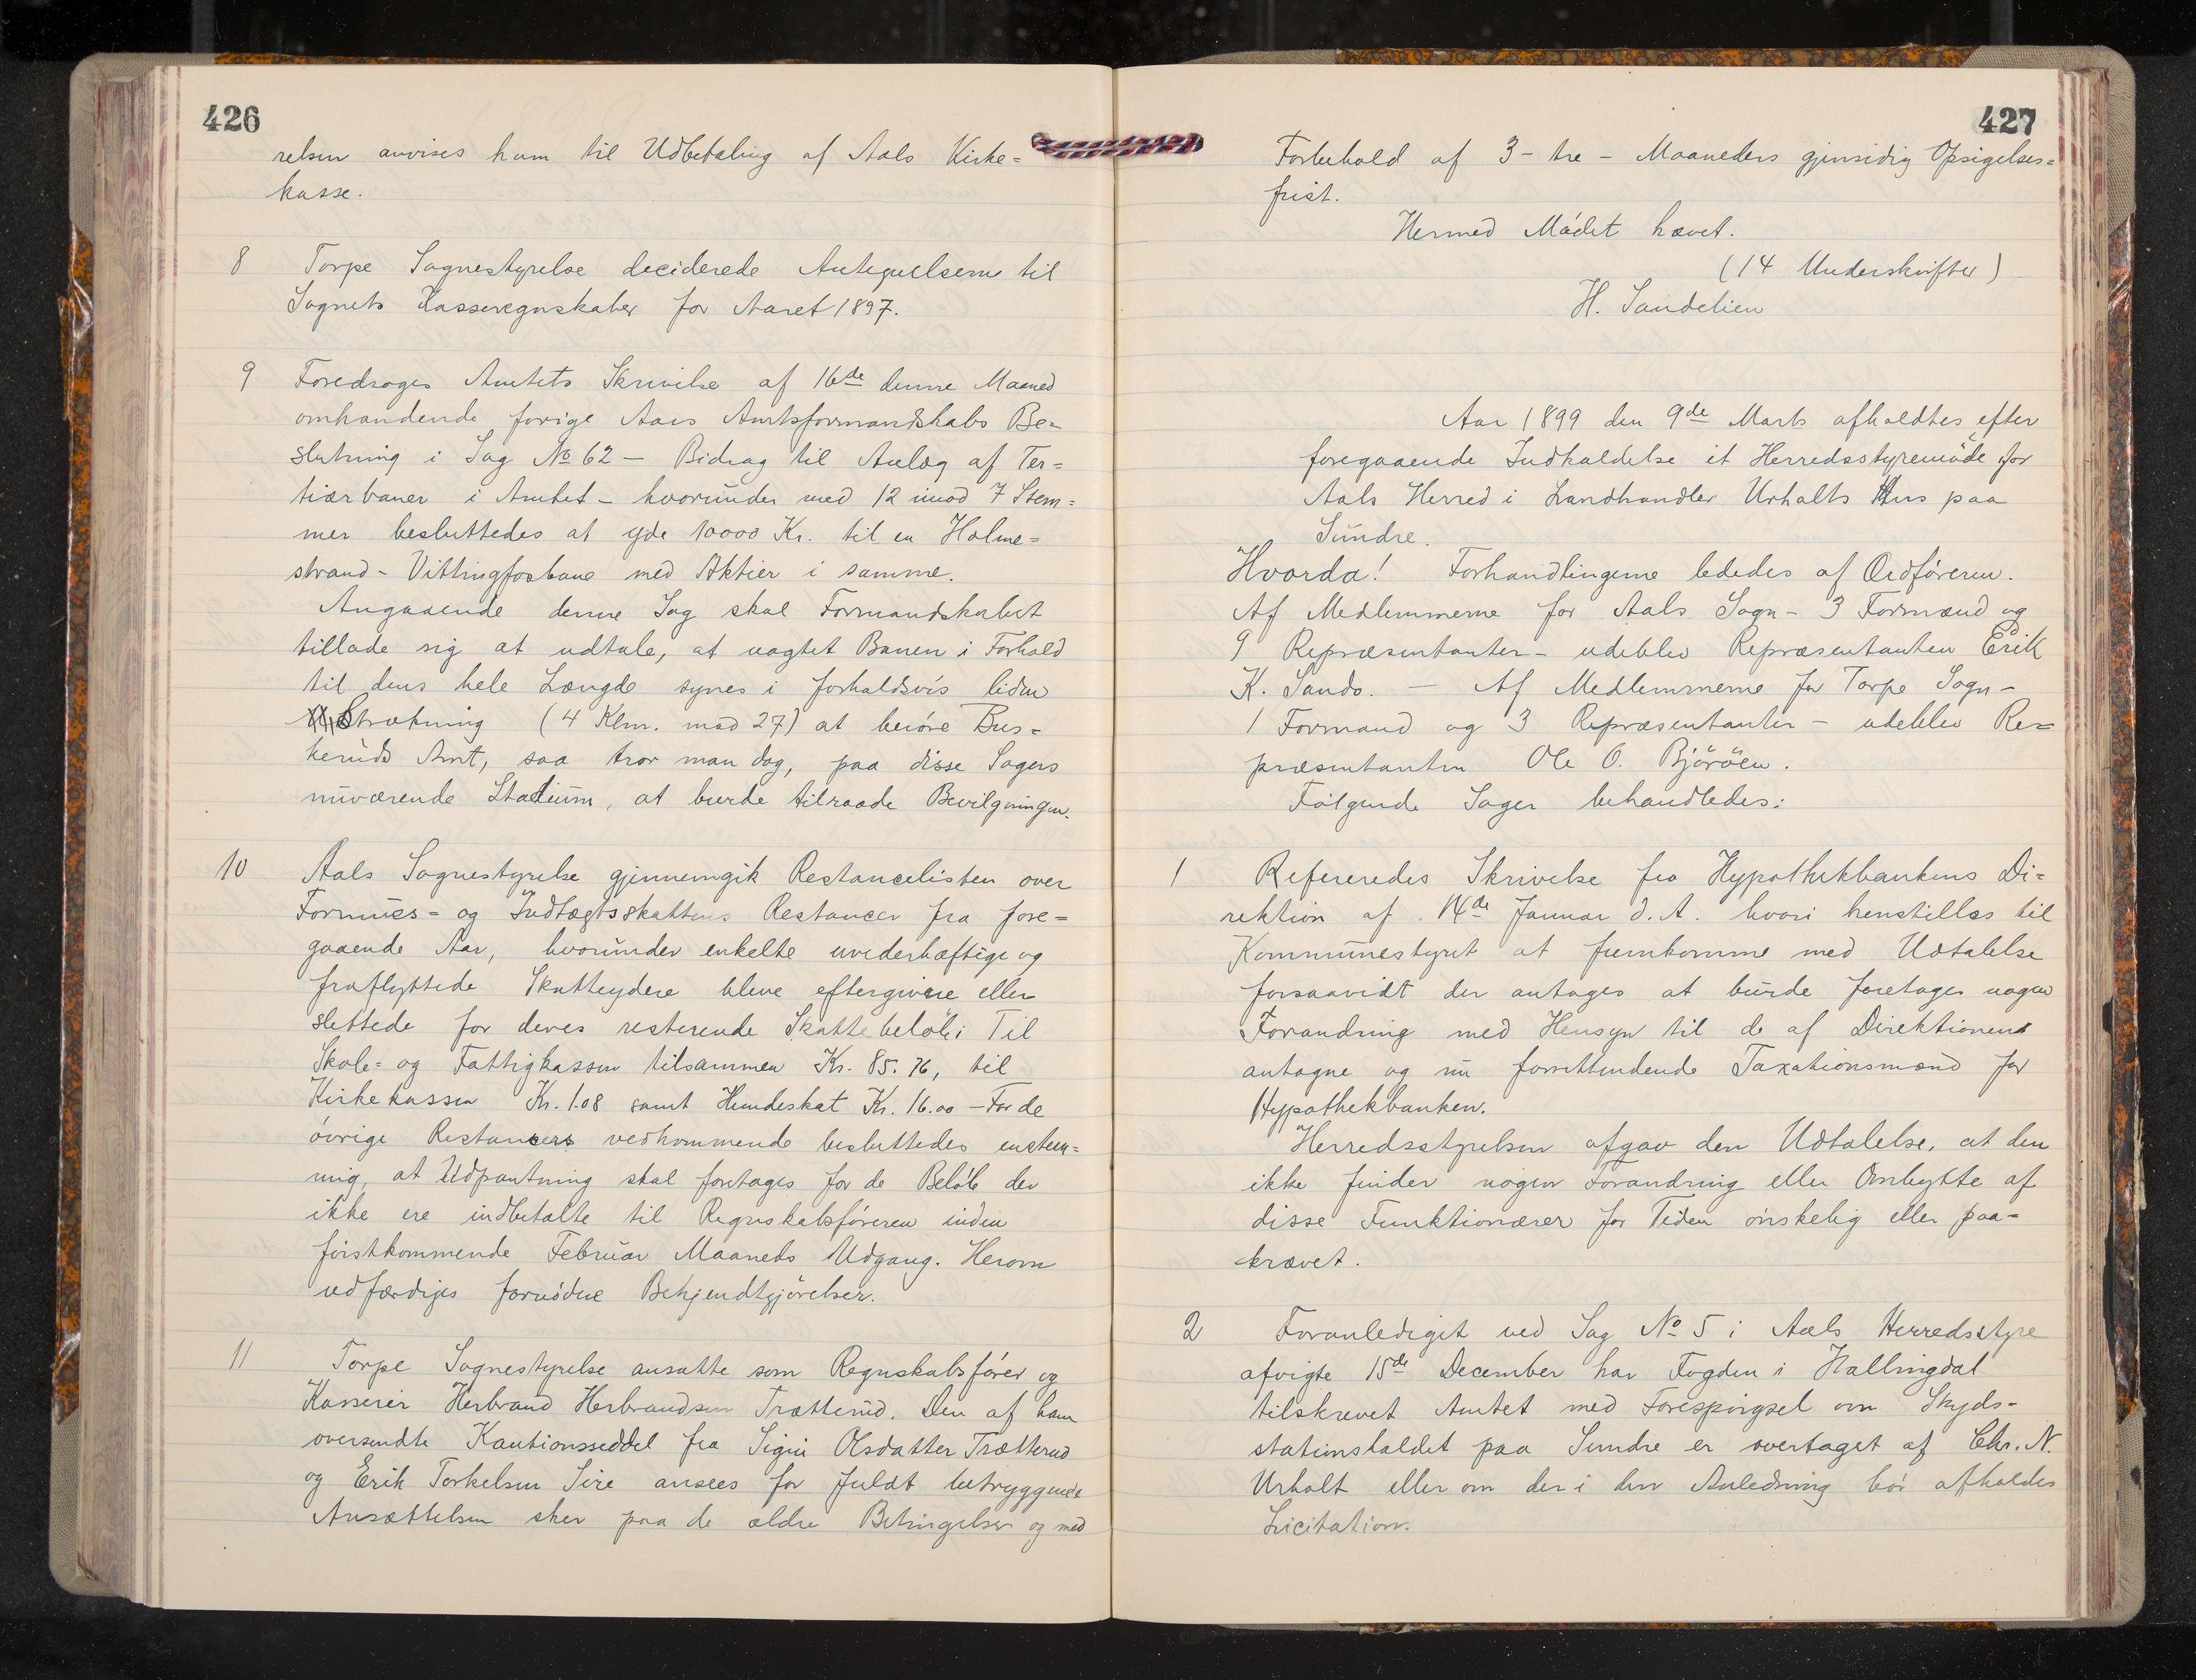 426
relsen anvises ham til Udbetaling af Aals Kirke=
kasse.
8 Torpe Sognestyrelse deciderede Antegnelserne til
Sognets Kasseregnskaber for Aaret 1897.
9 Foredroges Amtets Skrivelse af 16de denne Maaned
omhandende forige Aars Amtsformandskabs Be=
slutning i Sag No 62 — Bidrag til Anlæg af Ter=
tiærbaner i Amtet – hvorunder med 12 imod 7 Stem=
mer besluttedes at yde 10000 Kr. til en Holme=
strand – Vittingfosbane med Aktier i samme.
Angaaende denne Sag skal Formandskabet
tillade sig at udtale, at uagtet Banen i Forhold
til dens hele Længde synes i forholdsvis liden
Strækning (4 Klm. mod 27) at berøre Bus=
keruds Amt, saa tror man dog, paa disse Sagers
nuværende Stadium, at burde tilraade Bevilgningen.
10 Aals Sognestyrelse gjennemgik Restancelisten over
Formues= og Indtægtsskattens Restancer fra fore=
gaaende Aar, hvorunder enkelte uvederhæftige og
fraflyttede Skatteydere bleve eftergivne eller
slettede for deres resterende Skattebeløb: Til
Skole= og Fattigkassen tilsammen Kr. 85.76, til
Kirkekassen Kr. 1.08 samt Hundeskat Kr. 16.00 – For de
øvrige Restancers vedkommende besluttedes enstem=
mig, at Udpantning skal foretages for de Beløb der
ikke ere indbetalte til Regnskabsføreren inden
førstkommende Februar Maaneds Udgang. Herom
udfærdiges fornødne Bekjendtgjørelser.
11 Torpe Sognestyrelse ansatte som Regnskabsfører og
Kasserer Herbrand Herbrandsen Trætterud. Den af ham
oversendte Kautionsseddel fra Sigri Olsdatter Trætterud
og Erik Torkelsen Sire ansees for fuldt betryggende
Ansættelsen sker paa de ældre Betingelser og med
427
Forbehold af 3 – tre – Maaneders gjensidig Opsigelses=
frist.
Hermed Mødet hævet.
(14 Underskrifter)
H. Sandelien
Aar 1899 den 9de Marts afholdtes efter
foregaaende Indkaldelse et Herredsstyremøde for
Aals Herred i Landhandler Urhalts Hus paa
Sundre.
Hvorda! Forhandlingerne lededes af Ordføreren.
Af Medlemmerne for Aals Sogn – 3 Formænd og
9 Repræsentanter – udeblev Repræsentanten Erik
K. Sando. — Af Medlemmerne for Torpe Sogn –
1 Formand og 3 Repræsentanter – udeblev Re=
præsentanten Ole O. Bjøröen.
Følgende Sager behandledes:
1 Refereredes Skrivelse fra Hypothekbankens Di=
rektion af 14de Januar d. A. hvori henstilles til
Kommunestyret at fremkomme med Udtalelse
forsaavidt der antages at burde foretages nogen
Forandring med Hensyn til de af Direktionens
antagne og nu forrettendende Taxationsmænd for
Hypothekbanken.
Herredsstyrelsen afgav den Udtalelse, at den
ikke finder nogen Forandring eller Ombytte af
disse Funktionærer for Tiden ønskelig eller paa=
krævet.
2 Foranlediget ved Sag No 5 i Aals Herredsstyre
afvigte 15de December har Fogden i Hallingdal
tilskrevet Amtet med Forespørgsel om Skyds-
stationsholdet paa Sundre er overtaget af Chr. N.
Urhalt eller om der i den Anledning bør afholdes
Licitation.